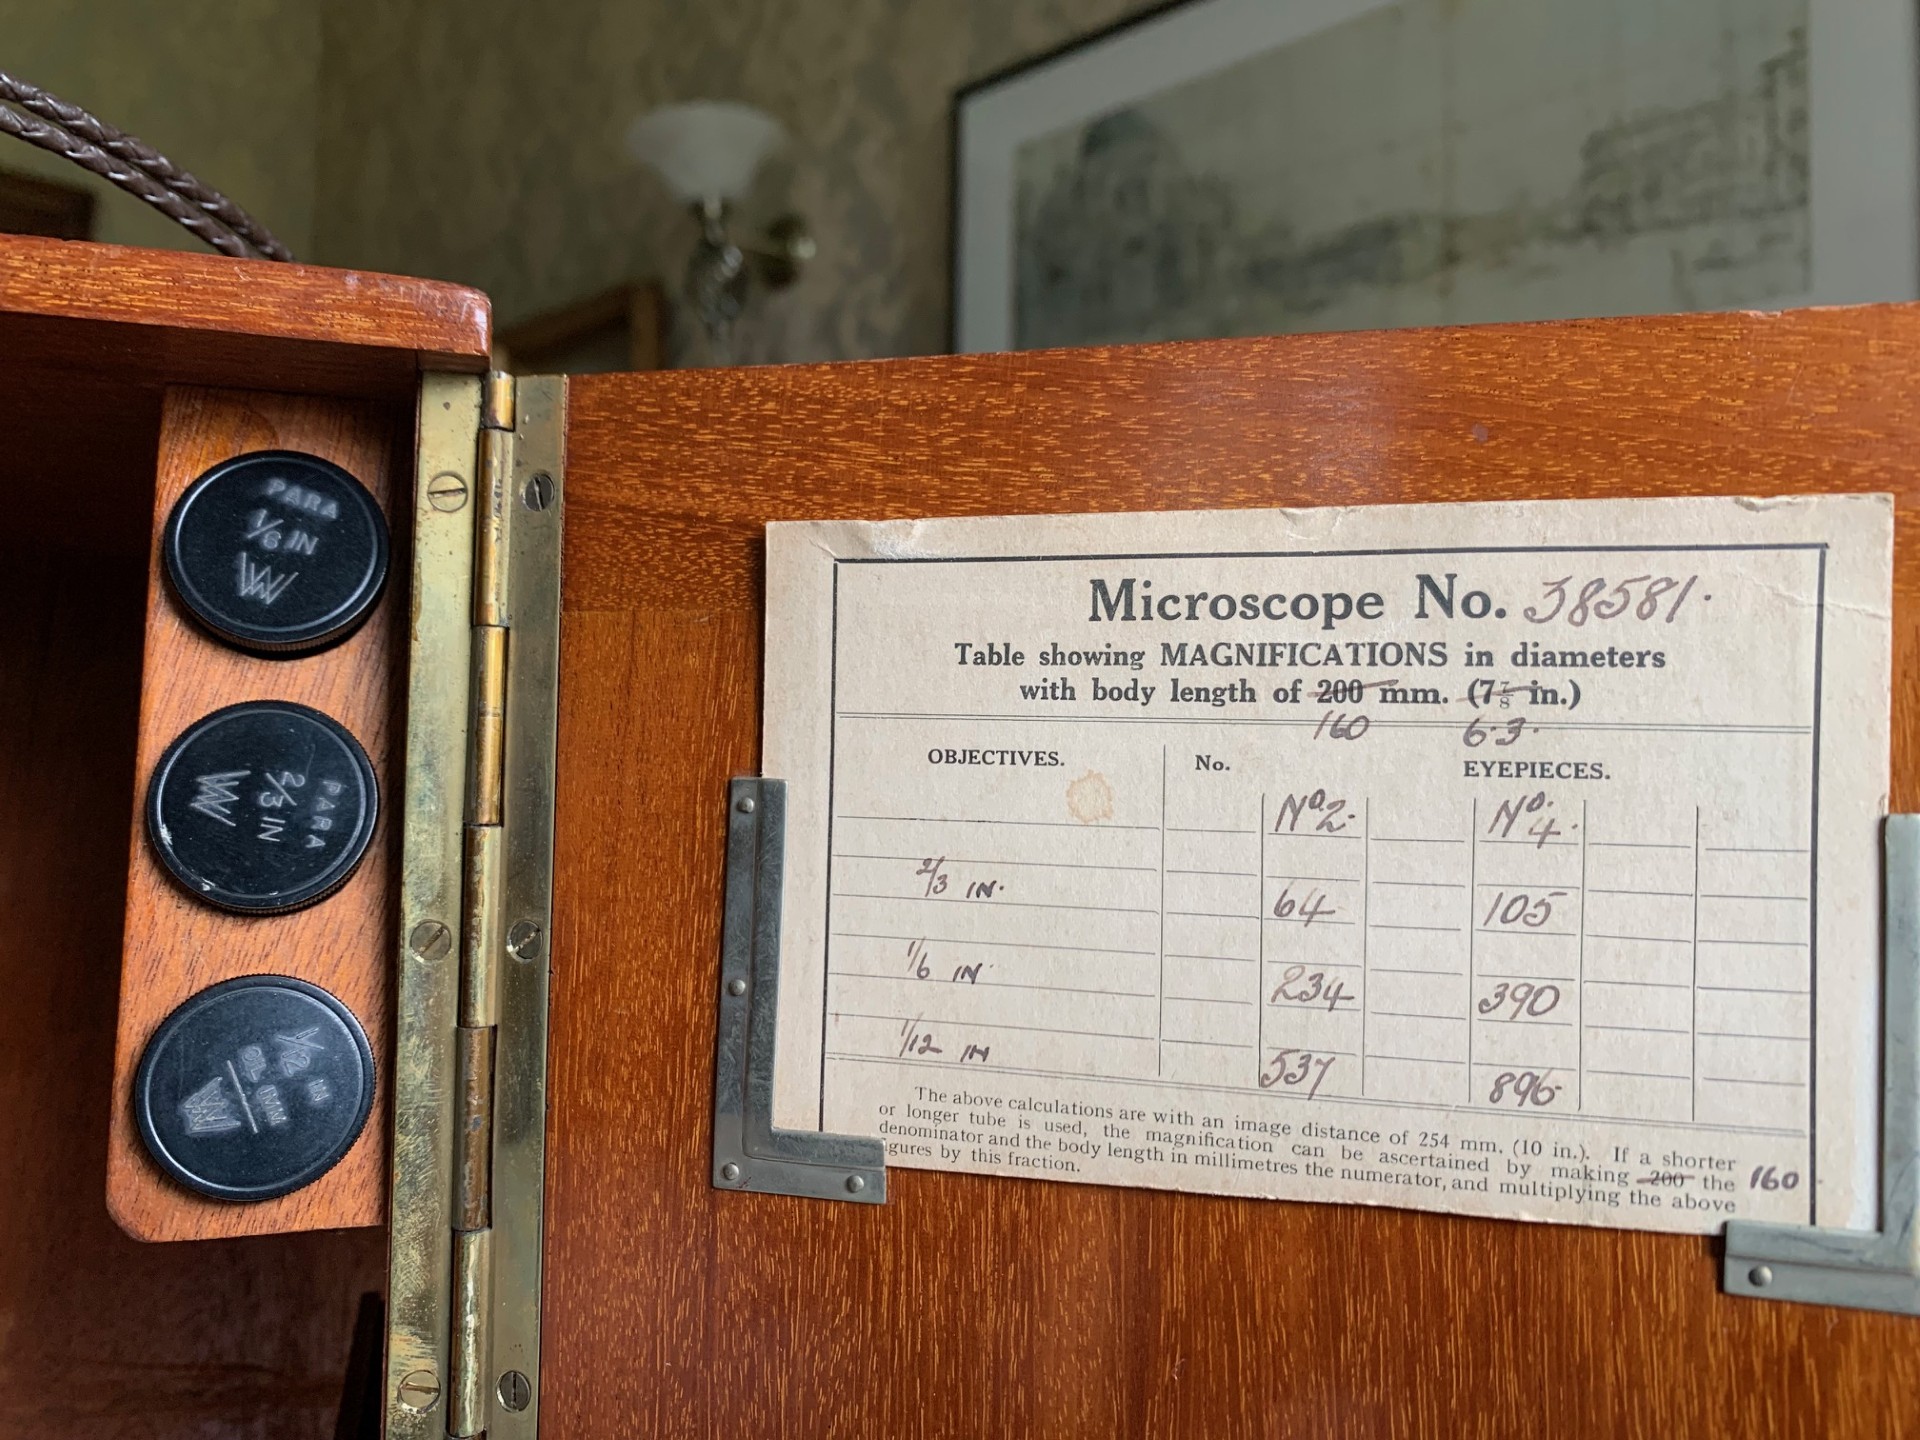 PARA
1/6 IN
W
PARA
2/3 IN
W
1/12 IN
OIL IMM
Microscope No. 38581.
Table showing MAGNIFICATIONS in diameters
with body length of 200 mm. (7 7/8 in.)
160 6.3.
OBJECTIVES. No. EYEPIECES.
No. 2. No. 4.
2/3 IN. 64 105
1/6 IN. 234 390
1/12 IN 537 896.
The above calculations are with an image distance of 254 mm. (10 in.). If a shorter
or longer tube is used, the magnification can be ascertained by making 200 the 160
denominator and the body length in millimetres the numerator, and multiplying the above
figures by this fraction.